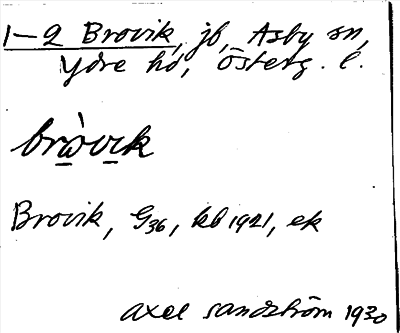 1-2 Brovik, jb, Asby sn,
Ydre hd, Österg. l.
bròvik
Brovik, G36, kb 1921, ek
Axel Sandström 1930